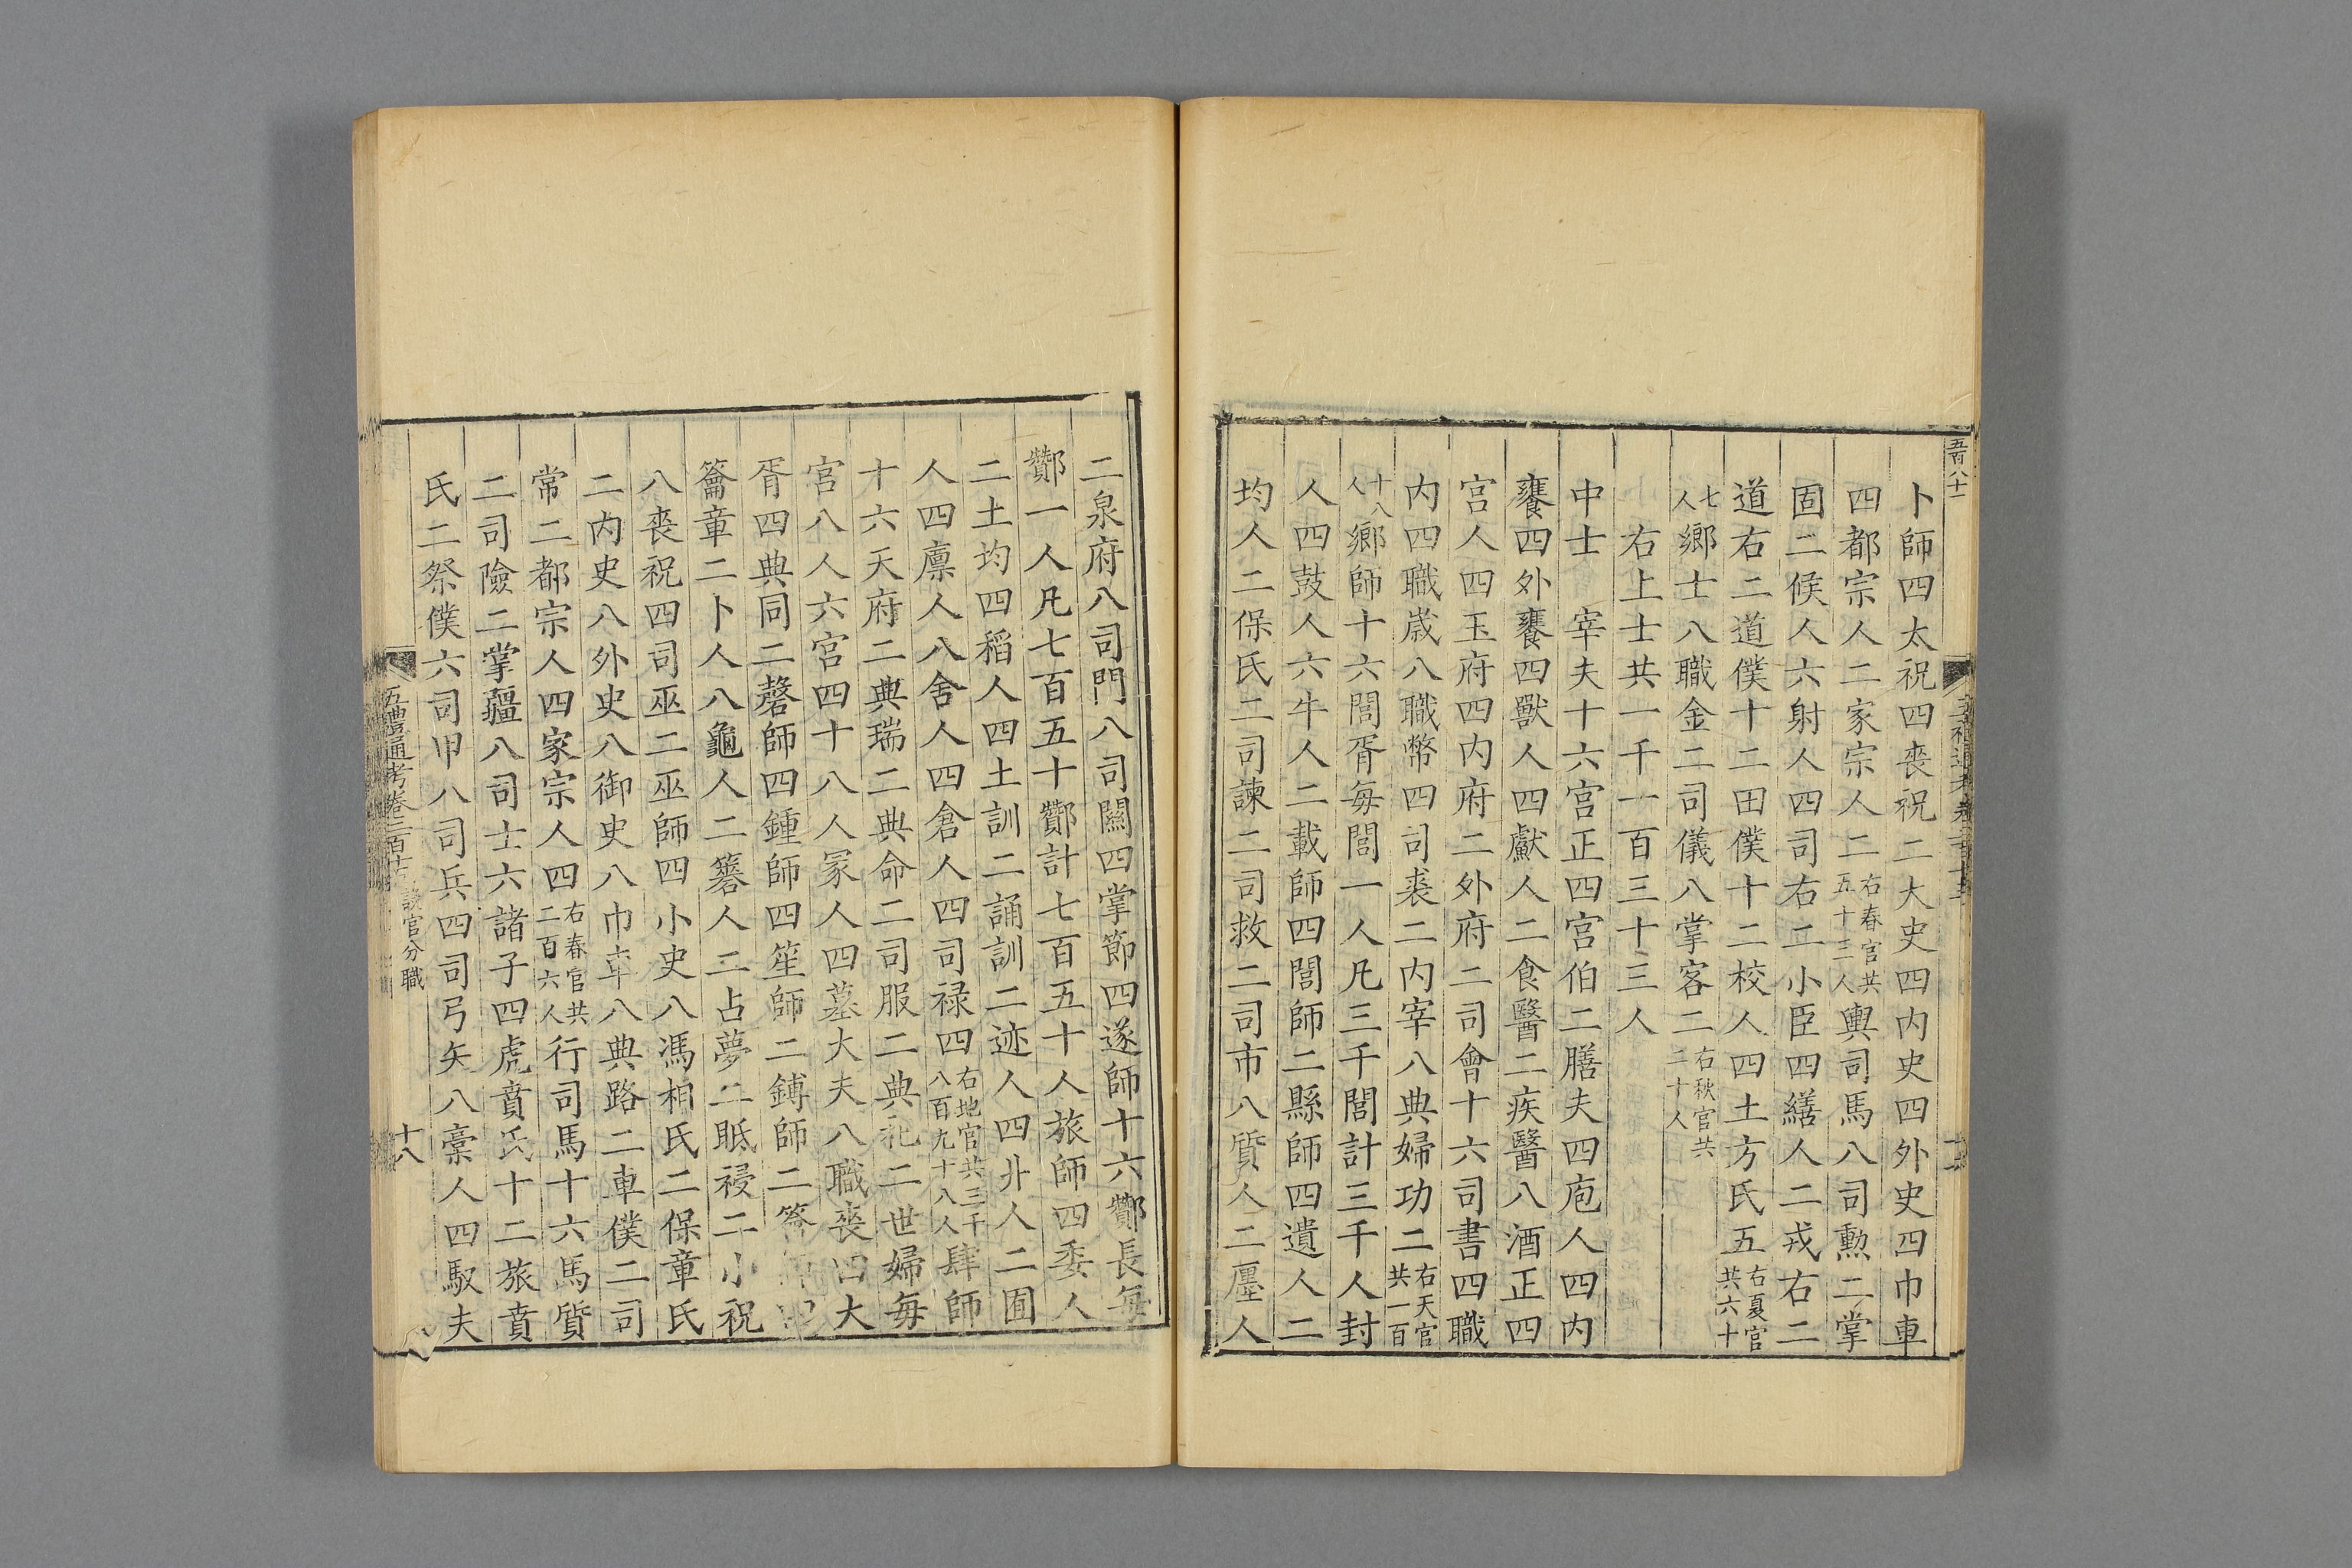 五百八十
卜師四太祝四喪祝二大史四內史四外史四巾車
四都宗人二家宗人二右春官共五十三人輿司馬八司勲二掌
固二候人六射人四司右二小臣四繕人二戎右二
道右二道僕十二田僕十二校人四土方氏五右夏官共六十
七人鄉士八職金二司儀八掌客二右秋官共二十人
右上士共一千一百三十三人
中士 宰夫十六宫正四宫伯二膳夫四庖人四内
饔四外饔四獸人四䱷人二食醫二疾醫八酒正四
宫人四玉府四内府二外府二司會十六司書四職
内四職嵗八職幣四司裘二内宰八典婦功二右天官共一百
十八人鄉師十六閭胥每閭一人凡三千閭計三千人封
人四鼓人六牛人二載師四閭師二縣師四遺人二
均人二保氏二司諫二司救二司市八質人二廛人
二泉府八司門八司關四掌節四遂師十六酇長每
酇一人凡七百五十酇計七百五十人旅師四委人
二土均四稻人四土訓二誦訓二迹人四丱人二囿
人四廪人八舍人四倉人四司禄四右地官共三千八百九十八人肆師
十六天府二典瑞二典命二司服二典祀二世婦每
宫八人六宫四十八人冢人四墓大夫八職喪四大
胥四典同二磬師四鍾師四笙師二鎛師二籥
籥章二卜人八龜人二簭人二占夢二眡祲二小祝
八喪祝四司巫二巫師四小史八馮相氏二保章氏
二内史八外史八御史八巾車八典路二車僕二司
常二都宗人四家宗人四右春官共二百六人行司馬十六馬質
二司險二掌疆八司士六諸子四虎賁氏十二旅賁
氏二祭僕六司甲八司兵四司弓矢八槀人四馭夫
五禮通考卷二百十 設官分職 十八